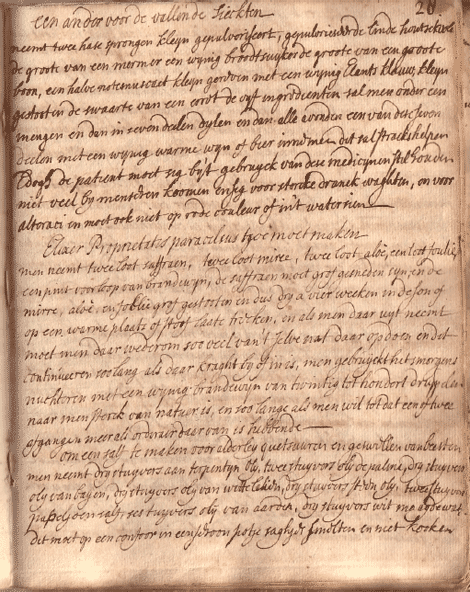 20
een ander voor de vallende Sieckten
neemt twee hase sprongen kleyn gepulveriseert, linde
de groote van een een wynig broodtsuycker de groote van een groote
boon, een halve notemuscaet kleyn met een wynig Elants klauw, kleyn
gestooten de swaarte van een de vyf ingredienten sal men onder een
mengen en dan in seven deelen dylen en dan alle avonden een van dese seven
deelen met een wynig warme wyn of bier innemen dit sal straks helpen
Edogh de patient moet sig byt gebruyck van dese medicynen stil houden
niet veel by menschen koomen en sig voor stercke dranck waghten, en voor
in moet ook niet op rode couleur of int water sien
Elixer Proprietatis paracelsus hoe men moet maken
men neemt twee loot saffraen, twee loot mirre, twee loot aloë, een loot
een pint voorloop van brandewyn, de saffraen moet grof gesneden syn, en de
mirre, aloë, en grof gestooten en dus dry a vier weeken in de son of
op een warme plaats of stoof laate trecken, en als men daar uyt neemt
moet men daar wederom soo veel van't selve nat daar op doen en dit
continueren soo lang als daar kraght by of in is, men gebruyckt het smorgens
nuchteren met een wynig brandewyn van twintig tot hondert druppelen
naar men sterck van natuer is, en soo lange als men wil tot dat een of twee
afgangen meer als ordinair daar van is hebbende
om een salf te maken voor alderley quetsuuren en geswillen van beesten
men neemt dry stuyvers aan terpentyn oly, twee stuyvers oly de palme, dry stuyvers
oly van bayen, dry stuyvers oly van dry stuyvers steen oly, twee stuyvers
salf, ses stuyvers oly van aarden, dry stuyvers wit
dit moet op een confoor in een potje saghjes smelten en niet kooken